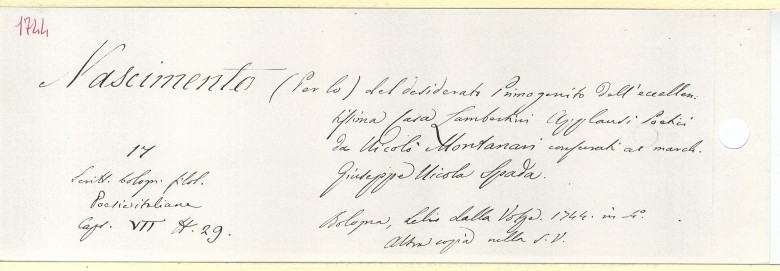 1744
Nascimento (Per lo) del desiderato Primogenito Dell'eccellen-
tissima Casa Lambertini Applausi Poetici
da Nicolò Montanari consacrati al march.
Giuseppe Nicola Spada.
17
Scritt. bologn. filol.
Poesie italiane
Caps. VII N. 29.
Bologna, Lelio dalla Volpe. 1744. in 4°.
Altra copia nella S. V.